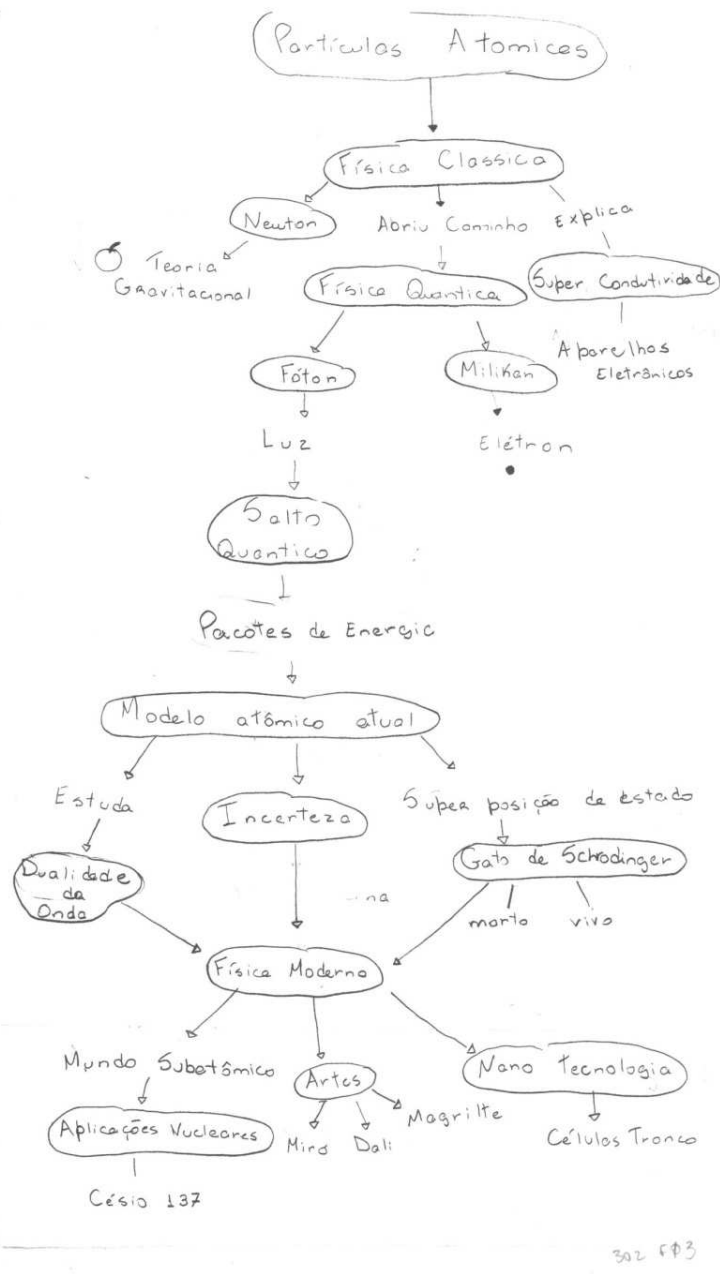 Partículas Atomices
Física Classica
Newton
Abriu Caminho
Explica
Teoria
Gravitacional
Física Quantica
Super Condutividade
Aparelhos
Eletrânicos
Fóton
Milikan
Luz
Elétron
Salto
Quantico
Pacotes de Energia
Modelo atômico atual
Estuda
Incerteza
Super posição de estado
Dualidade
da
Onda
na
Gato de Schrodinger
morto
vivo
Física Moderna
Mundo Subatômico
Artes
Nano Tecnologia
Aplicações Nucleares
Miró
Dali
Magrilte
Células Tronco
Césio 137